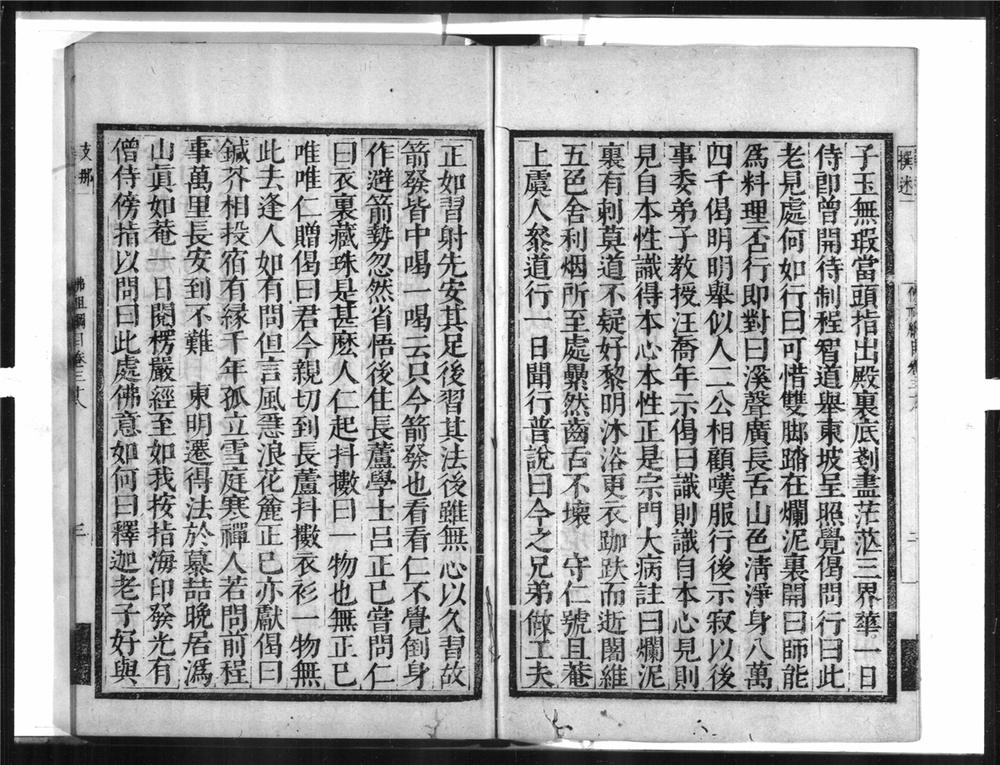 子玉無瑕當頭指出殿裏底剗盡茫茫三界華一日
侍郎曾開待制程智道舉東坡呈照覺偈問行曰此
老見處何如行曰可惜雙脚踏在爛泥裏開曰師能
爲料理否行即對曰溪聲廣長舌山色清淨身八萬
四千偈明明舉似人二公相顧嘆服行後示寂以後
事委弟子教授汪喬年示偈曰識則識自本心見則
見自本性識得本心本性正是宗門大病註曰爛泥
裏有刺莫道不疑好黎明沐浴更衣跏趺而逝闍維
五色舍利烟所至處纍然齒舌不壞　守仁號且菴
上虞人叅道行一日聞行普說曰今之兄弟做工夫
正如習射先安其足後習其法後雖無心以久習故
箭發皆中喝一喝云只今箭發也看看仁不覺倒身
作避箭勢忽然省悟後住長蘆學士呂正巳嘗問仁
曰衣裏藏珠是甚麽人仁起抖擻曰一物也無正巳
唯唯仁贈偈曰君今親切到長蘆抖擻衣衫一物無
此去逢人如有問但言風惡浪花麄正巳亦獻偈曰
鍼芥相投宿有緣千年孤立雪庭寒禪人若問前程
事萬里長安到不難　東明遷得法於慕喆晚居溈
山眞如菴一日閱楞嚴經至如我按指海印發光有
僧侍傍指以問曰此處佛意如何曰釋迦老子好與
支那
佛祖綱目卷三十八
三